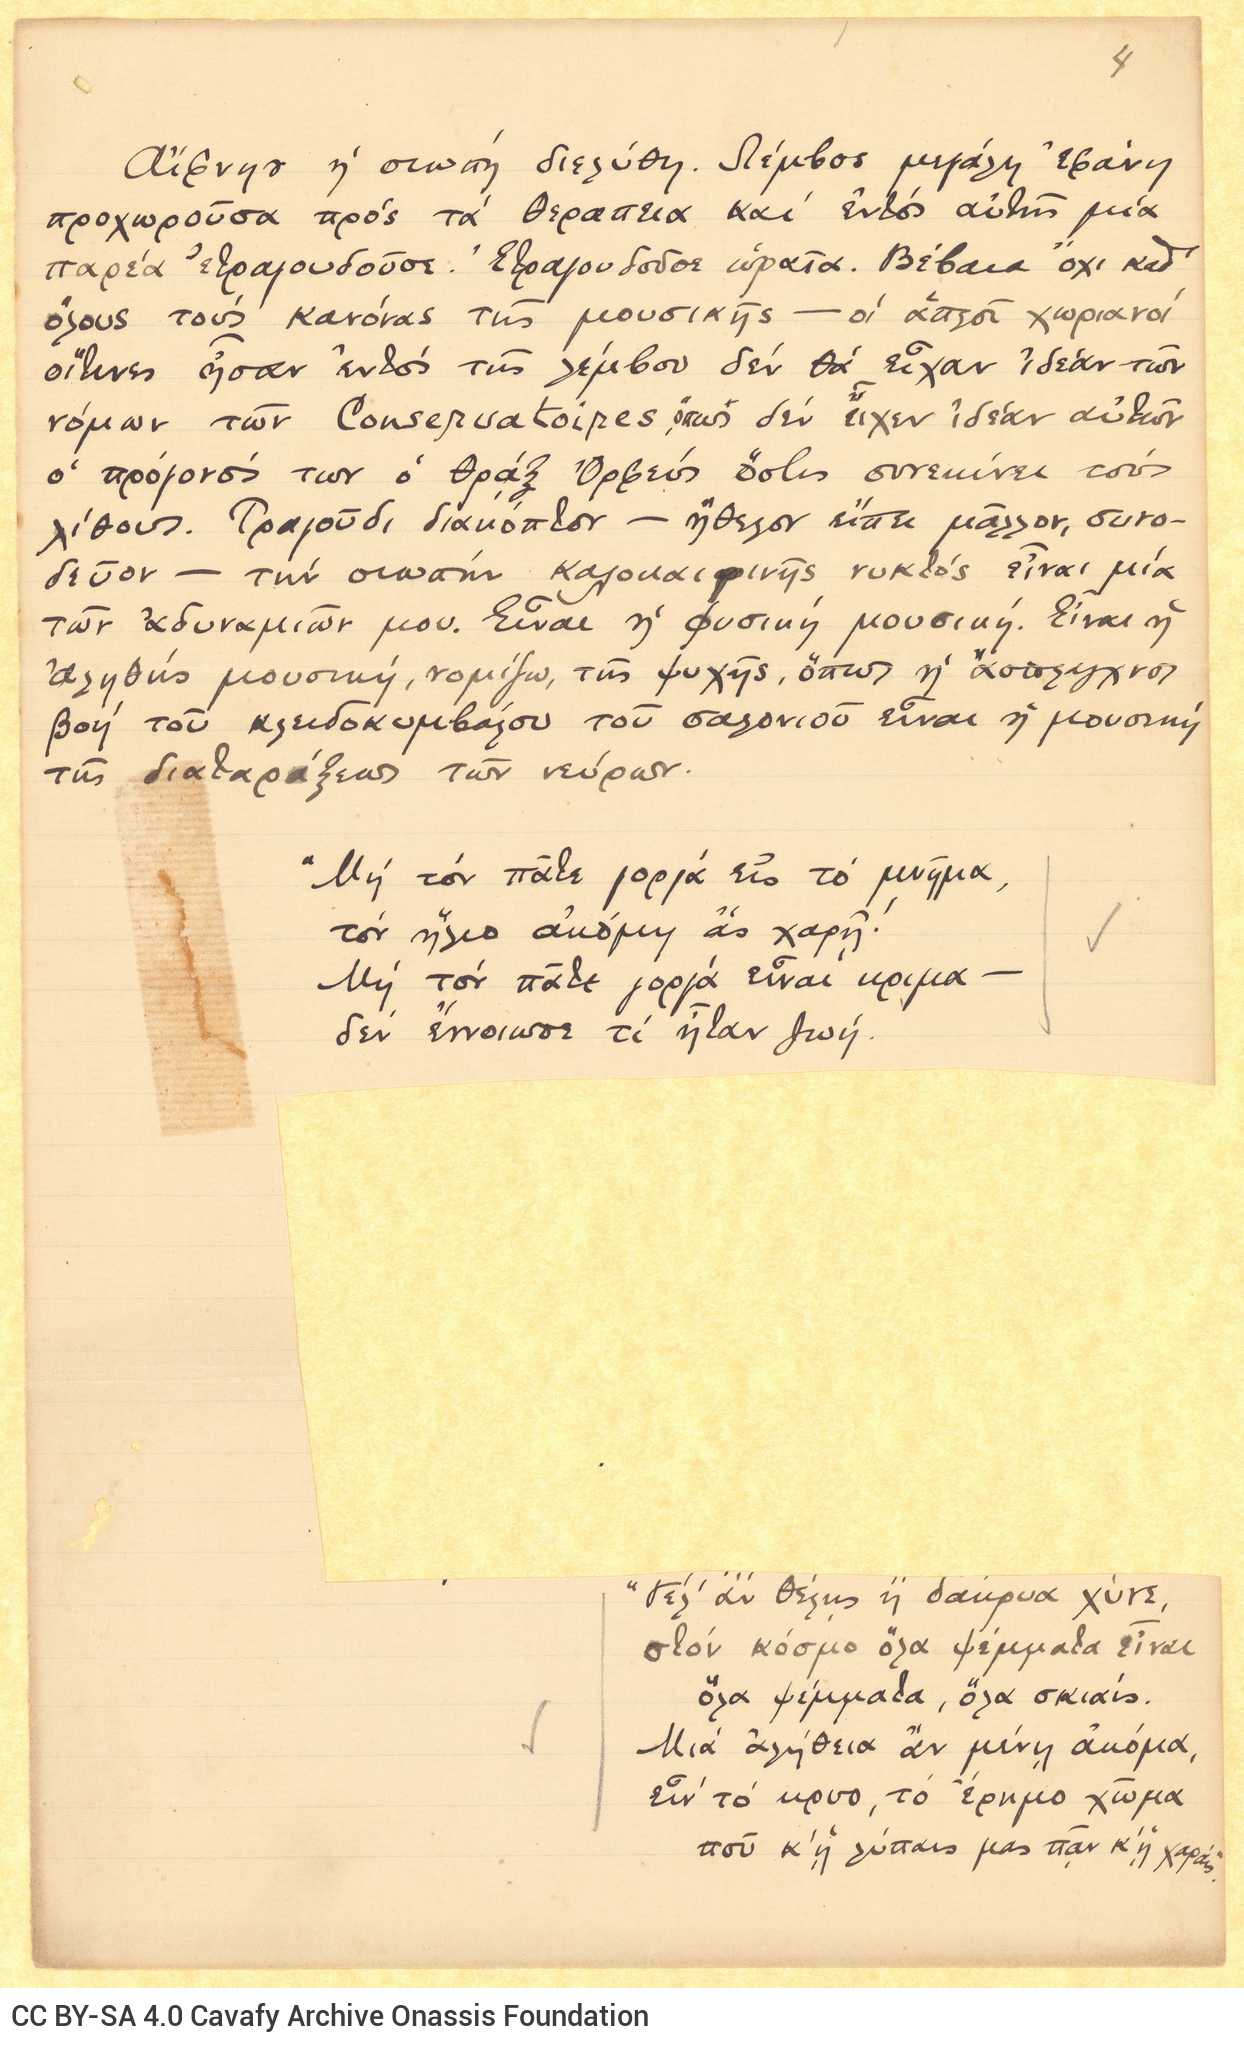 4
Αἴφνης ἡ σιωπή διελύθη. Λέμβος μεγάλη ἐφάνη
προχωροῦσα πρός τά θεραπεια καί ἐντός αὐτῆς μία
παρέα ἐτραγουδοῦσε. Ἐτραγουδοῦσε ὡραῖα. Βέβαια ὄχι καθ'
ὅλους τούς κανόνας τῆς μουσικῆς — οἱ ἁπλοῖ χωριανοί
οἵτινες ἦσαν ἐντός τῆς λέμβου δέν θά εἶχαν ἰδέαν τῶν
νόμων τῶν Conservatoires, ὅπως δέν εἶχεν ἰδέαν αὐτῶν
ὁ πρόγονός των ὁ θράξ Ὀρφεύς ὅστις συνεκίνει τούς
λίθους. Τραγοῦδι διακόπτον — ἤθελον εἴπει μᾶλλον, συνο-
δεῦον — τήν σιωπήν καλοκαιρινῆς νυκτός εἶναι μία
τῶν ἀδυναμιῶν μου. Εἶναι ἡ φυσική μουσική. Εἶναι ἡ
ἀληθής μουσική, νομίζω, τῆς ψυχῆς, ὅπως ἡ ἄσπλαγχνος
βοή τοῦ κλειδοκυμβάλου τοῦ σαλονιοῦ εἶναι ἡ μουσική
τῆς διαταράξεως τῶν νεύρων.
"Μή τόν πᾶτε γοργά εἰς τό μνῆμα,
τόν ἥλιο ἀκόμη ἄς χαρῇ!
Μή τόν πᾶτε γοργά εἶναι κριμα —
δέν ἔννοιωσε τί ἦταν ζωή.
"Γέλ' ἄν θέλῃς ἤ δάκρυα χύνε,
στόν κόσμο ὅλα ψέμματα εἶναι
ὅλα ψέμματα, ὅλα σκιαίς.
Μιά ἀλήθεια ἄν μένῃ ἀκόμα,
εἶν' τό κρυο, τό ἔρημο χῶμα
ποῦ κ' ᾑ λύπαις μας πᾶν κ' ᾑ χαραίς".
CC BY-SA 4.0 Cavafy Archive Onassis Foundation